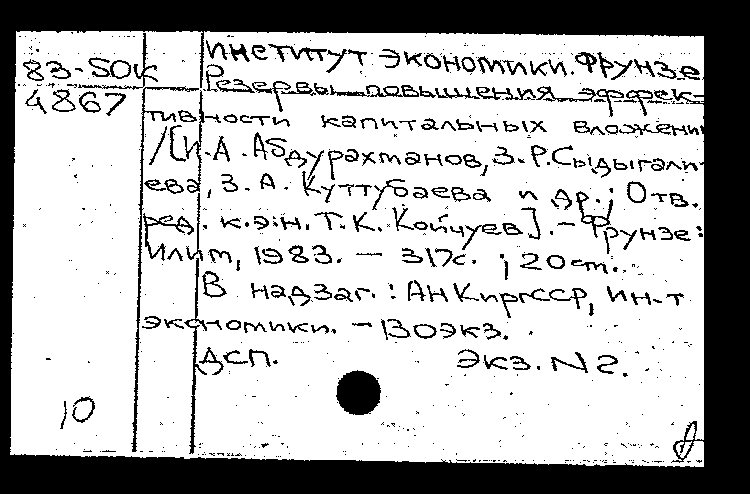 83-SOK
4867
институт экономики. Фрунзе
Резервы повышения эффек-
тивности капитальных вложени
/[И.А. Абдурахманов, З.Р.Сыдыгали-
ева, З.А. Куттубаева и др.; Отв.
ред. к.э.н. Т.К. Койчуев]. - Фрунзе:
Илим, 1983. - 317с. ; 20 cm.
В надзаг. : АН КиргССР, ин-т
экономики. - 130экз.
ДСП. Экз. N 2.
10